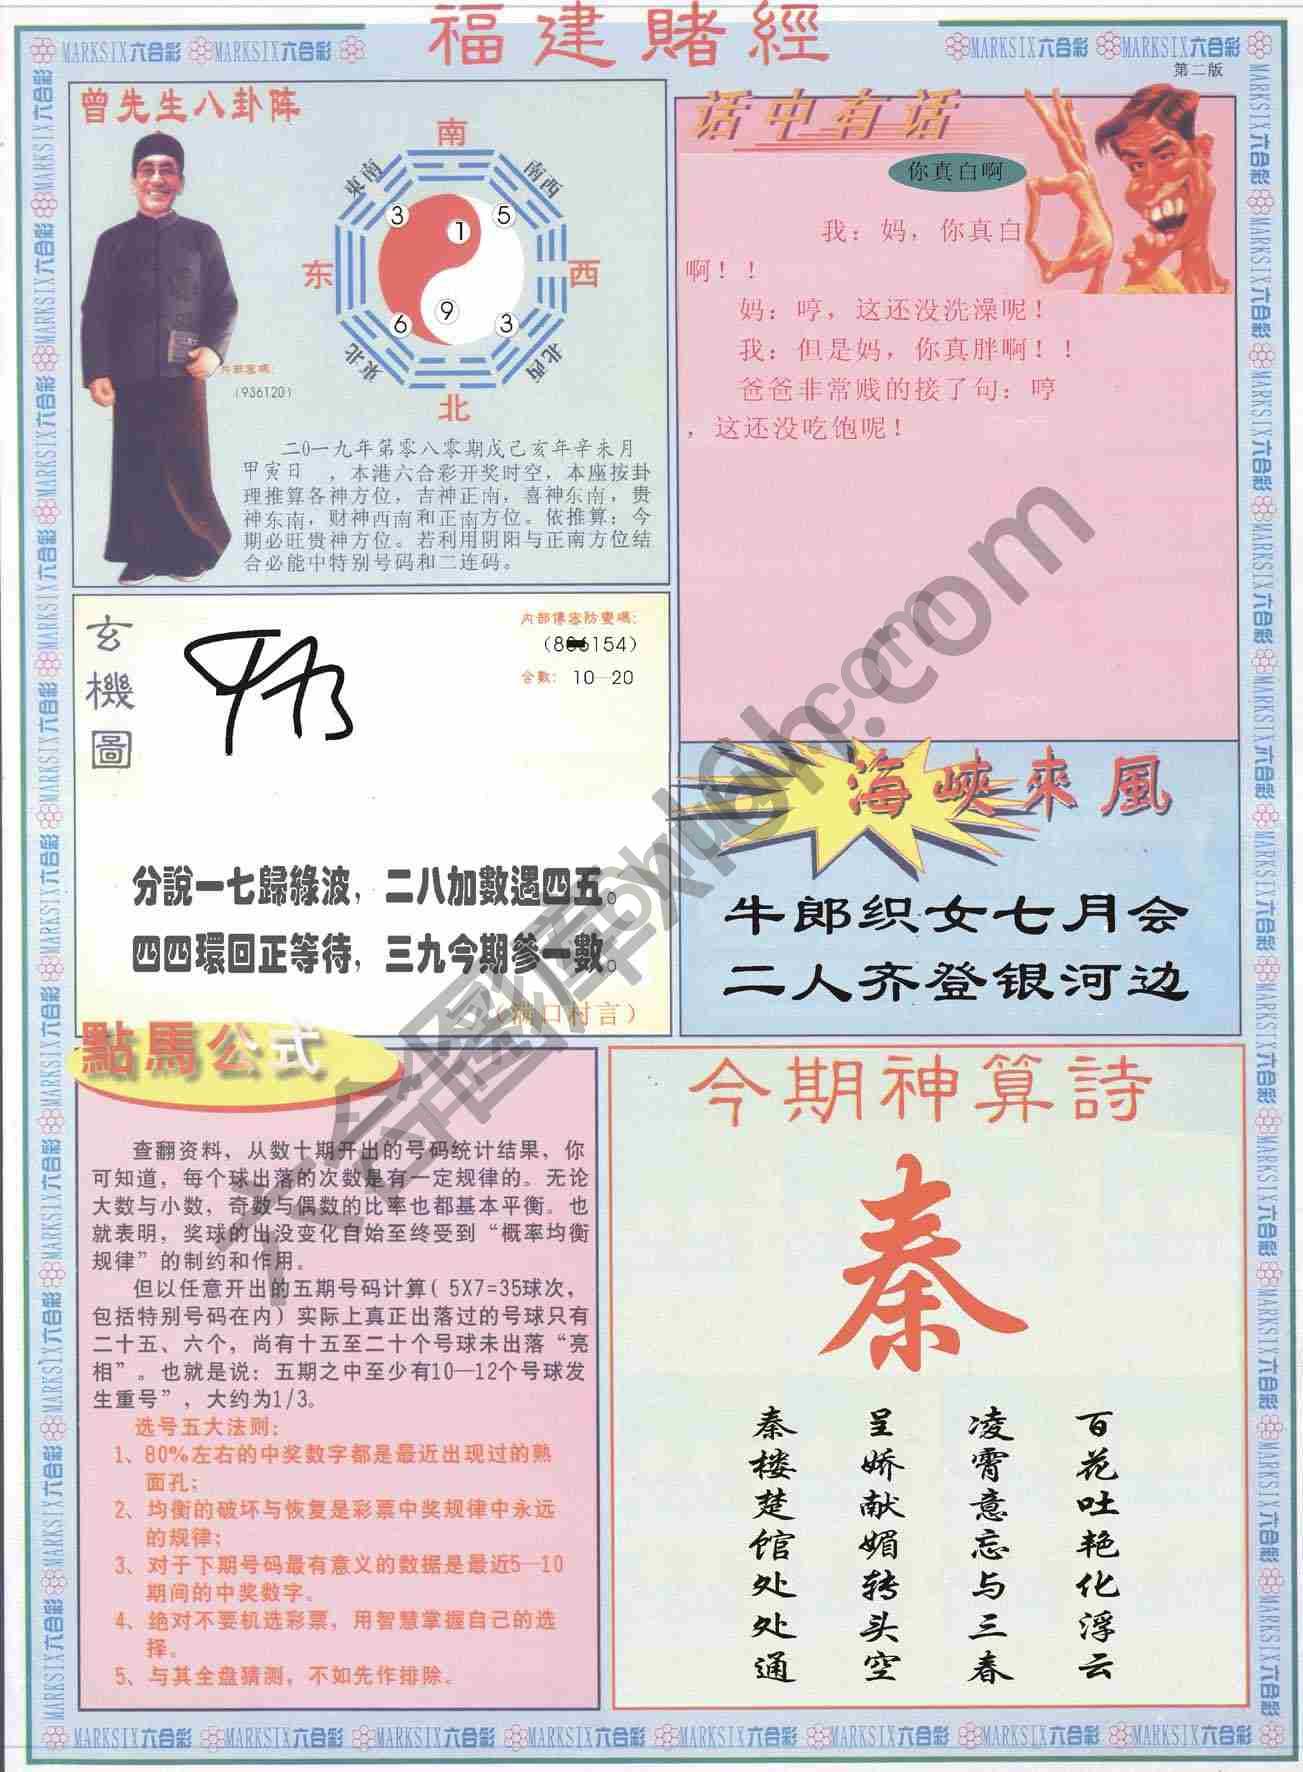 福建賭經
MARKSIX六合彩 MARKSIX六合彩
MARKSIX六合彩 MARKSIX六合彩
第二版
曾先生八卦阵
南
東南
南西
3
5
1
东
西
9
6
3
東北
北西
北
内部密碼:
(936120)
二0一九年第零八零期戊己亥年辛未月
甲寅日 ,本港六合彩开奖时空,本座按卦
理推算各神方位,吉神正南,喜神东南,贵
神东南,财神西南和正南方位。依推算:今
期必旺贵神方位。若利用阴阳与正南方位结
合必能中特别号码和二连码。
话中有话
你真白啊
我:妈,你真白
啊!!
妈:哼,这还没洗澡呢!
我:但是妈,你真胖啊!!
爸爸非常贱的接了句:哼
,这还没吃饱呢!
玄機圖
内部傳密防變碼:
合數: 10—20
分說一七歸綠波,二八加數遇四五。
四四環回正等待,三九今期參一數。
(满口村言)
海峽來風
牛郎织女七月会
二人齐登银河边
點馬公式
查翻资料,从数十期开出的号码统计结果,你
可知道,每个球出落的次数是有一定规律的。无论
大数与小数,奇数与偶数的比率也都基本平衡。也
就表明,奖球的出没变化自始至终受到“概率均衡
规律”的制约和作用。
但以任意开出的五期号码计算(5X7=35球次,
包括特别号码在内)实际上真正出落过的号球只有
二十五、六个,尚有十五至二十个号球未出落“亮
相”。也就是说:五期之中至少有10—12个号球发
生重号”,大约为1/3。
选号五大法则:
1、80%左右的中奖数字都是最近出现过的熟
面孔;
2、均衡的破坏与恢复是彩票中奖规律中永远
的规律;
3、对于下期号码最有意义的数据是最近5—10
期间的中奖数字。
4、绝对不要机选彩票,用智慧掌握自己的选
择。
5、与其全盘猜测,不如先作排除。
今期神算詩
秦
百花吐艳化浮云
凌霄意忘与三春
呈娇献媚转头空
秦楼楚馆处处通
MARKSIX六合彩 MARKSIX六合彩 MARKSIX六合彩 MARKSIX六合彩 MARKSIX六合彩 MARKSIX六合彩 MARKSIX六合彩 MARKSIX六合彩